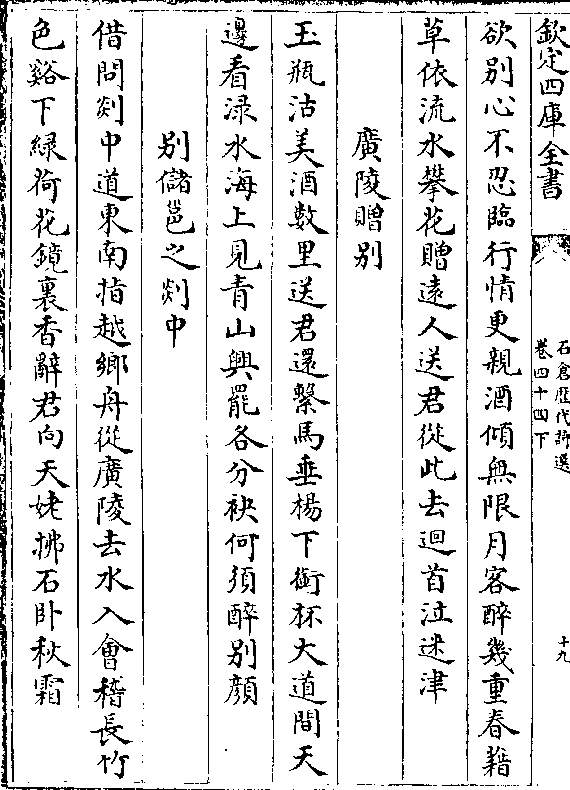 欽定四庫全書
石倉歷代詩選
卷四十四下
十九
欲别心不忍臨行情更親酒傾無限月客醉幾重春藉
草依流水攀花贈遠人送君從此去迴首泣迷津
廣陵贈别
玉瓶沽美酒數里送君還繫馬垂楊下銜杯大道間天
邊看渌水海上見青山興罷各分袂何須醉别顔
别儲邕之剡中
借問剡中道東南指越鄉舟從廣陵去水入會稽長竹
色谿下綠荷花鏡裏香辭君向天姥拂石卧秋霜